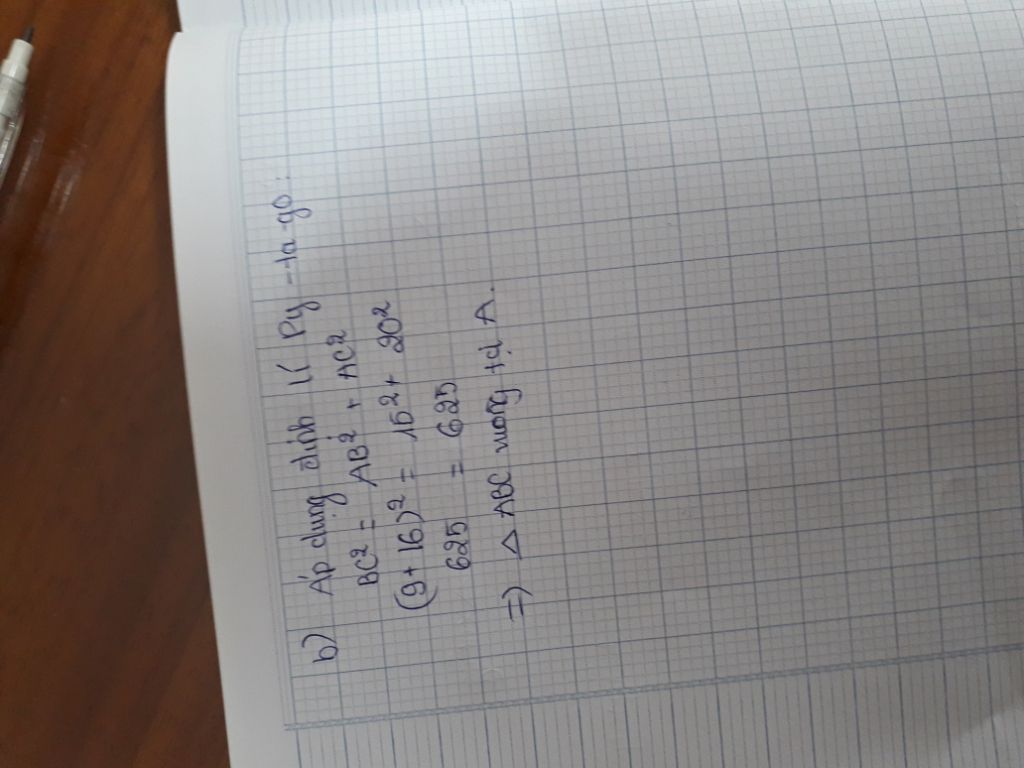 b) Áp dụng định lí Py-ta-go:
BC² = AB² + AC²
(9+16)² = 15² + 20²
625 = 625
=) Δ ABC vuông tại A.